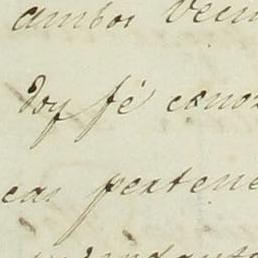 ambos Vecin
doy fé conoz
cas pertene